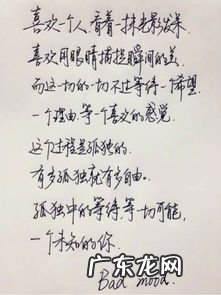 喜欢一个人,看着一抹光景发呆.
喜欢用眼睛捕捉瞬间的美
而这一切的一切不过等待一个希望.
一个理由,等一个喜欢的感觉.
这个过程是孤独的.
有多孤独就有多自由.
孤独中的等待,等一切可能,
一个未知的你.
Bad mood.
广东龙网